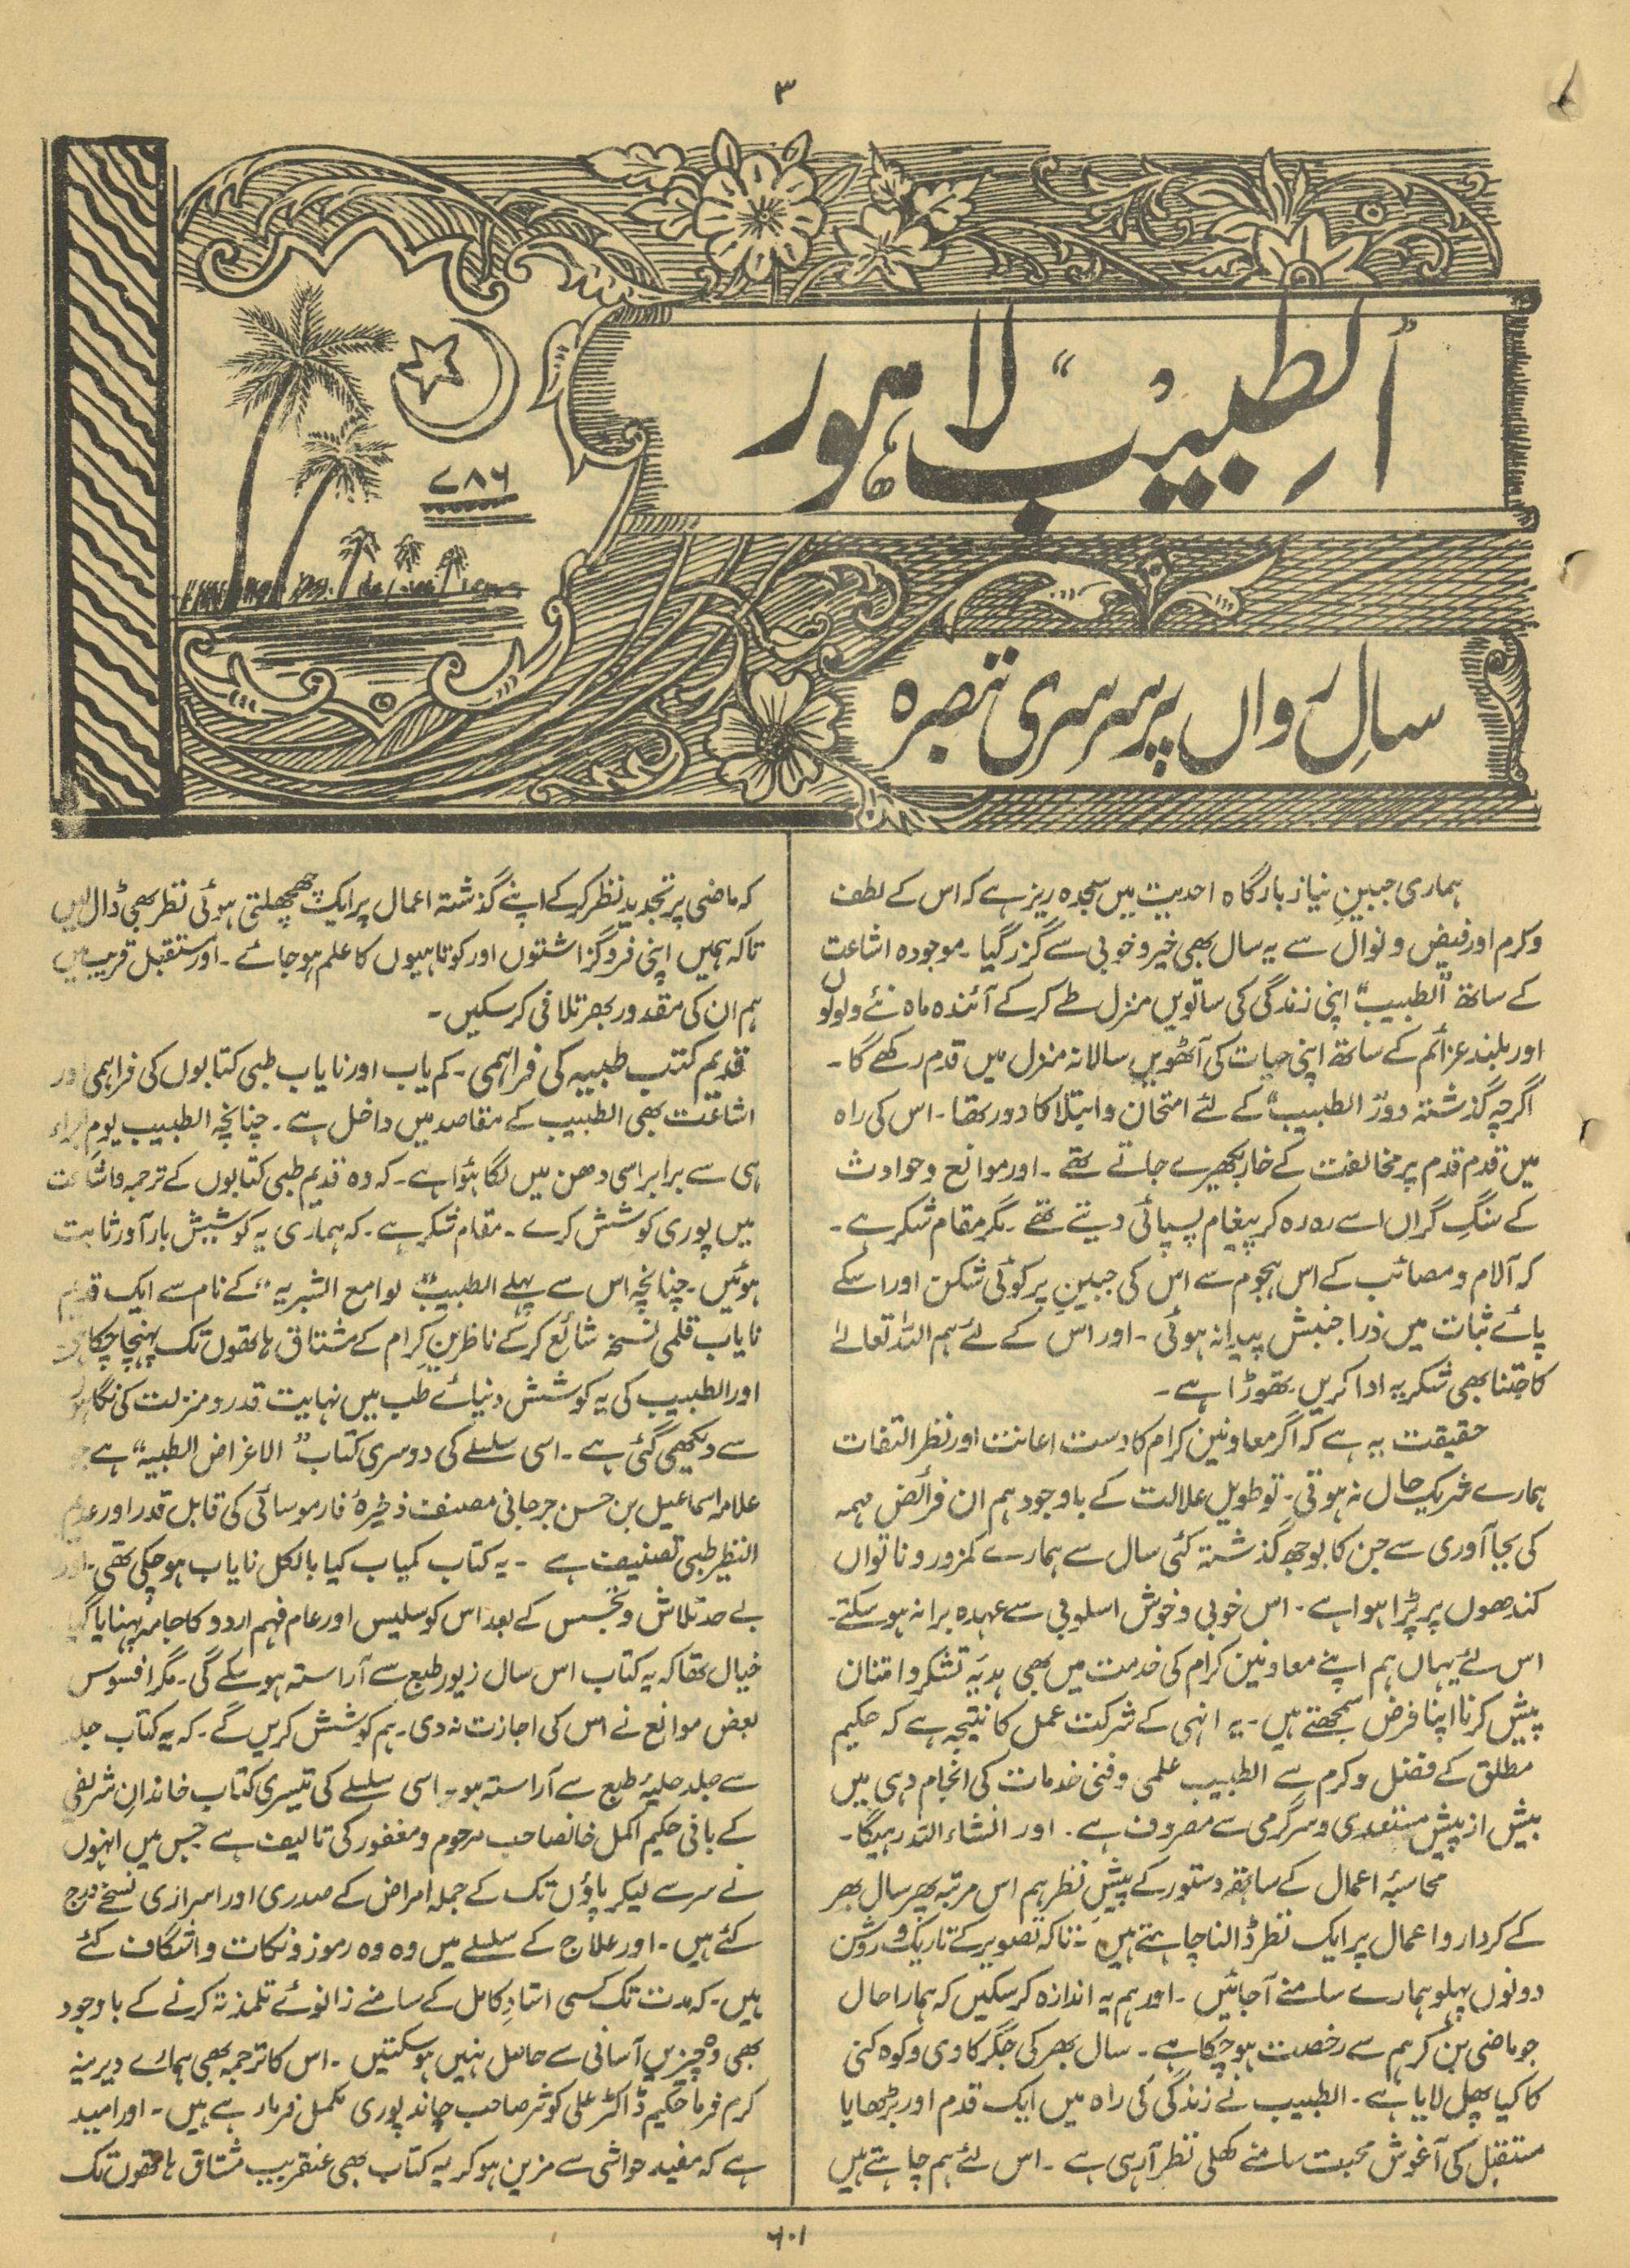 ۳
"اَلطبیب" لاہور
۷۸۶
سالِ رواں پر سرسری تبصرہ
ہماری جبینِ نیاز بارگاہ احدیت میں سجدہ ریز ہے کہ اس کے لطف
وکرم اور فیض و نوال سے یہ سال بھی خیر و خوبی سے گزر گیا۔ موجودہ اشاعت
کے ساتھ "الطبیب" اپنی زندگی کی ساتویں منزل طے کرکے آئندہ ماہ نئے ولولوں
اور بلند عزائم کے ساتھ اپنی حیات کی آٹھویں سالانہ منزل میں قدم رکھے گا۔
اگرچہ گذشتہ دور "الطبیب" کے لئے امتحان و ابتلا کا دور تھا۔ اس کی راہ
میں قدم قدم پر مخالفت کے خار بکھیرے جاتے تھے۔ اور موانع و حوادث
کے سنگِ گراں اسے رہ رہ کر پیغام پسپائی دیتے تھے۔ مگر مقام شکر ہے۔
کہ آلام و مصائب کے اس ہجوم سے اس کی جبین پر کوئی شکن اور اسکے
پائے ثبات میں ذرا جنبش پیدا نہ ہوئی۔ اور اس کے لئے ہم اللہ تعالےٰ
کا جتنا بھی شکریہ ادا کریں تھوڑا ہے۔
حقیقت یہ ہے کہ اگر معاونین کرام کا دست اعانت اور نظر التفات
ہمارے شریک حال نہ ہوتی۔ تو طویل علالت کے باوجود ہم ان فرائض مہمہ
کی بجا آوری سے جن کا بوجھ گذشتہ کئی سال سے ہمارے کمزور و ناتواں
کندھوں پر پڑا ہوا ہے۔ اس خوبی و خوش اسلوبی سے عہدہ برا نہ ہو سکتے۔
اس لئے یہاں ہم اپنے معاونین کرام کی خدمت میں بھی ہدیۂ تشکر و امتنان
پیش کرنا اپنا فرض سمجھتے ہیں۔ یہ انہی کے شرکت عمل کا نتیجہ ہے کہ حکیم
مطلق کے فضل و کرم سے الطبیب علمی و فنی خدمات کی انجام دہی میں
بیش از پیش مستعدی و سرگرمی سے مصروف ہے۔ اور انشاء اللہ رہیگا۔
محاسبۂ اعمال کے سابقہ دستور کے پیشِ نظر ہم اس مرتبہ پھر سال بھر
کے کردار و اعمال پر ایک نظر ڈالنا چاہتے ہیں۔ تاکہ تصویر کے تاریک و روشن
دونوں پہلو ہمارے سامنے آجائیں۔ اور ہم یہ اندازہ کرسکیں کہ ہمارا حال
جو ماضی بن کر ہم سے رخصت ہو چکا ہے۔ سال بھر کی جگر کاوی و کوہ کنی
کا کیا پھل لایا ہے۔ الطبیب نے زندگی کی راہ میں ایک قدم اور بڑھایا
مستقبل کی آغوش محبت سامنے کھلی نظر آرہی ہے۔ اس لئے ہم چاہتے ہیں
کہ ماضی پر تجدیدِ نظر کرکے اپنے گذشتہ اعمال پر ایک چھچھلتی ہوئی نظر بھی ڈال لیں
تاکہ ہمیں اپنی فروگزاشتوں اور کوتاہیوں کا علم ہو جائے۔ اور مستقبل قریب میں
ہم ان کی مقدور بھر تلافی کر سکیں۔
قدیم کتب طبیہ کی فراہمی۔ کم یاب اور نایاب طبی کتابوں کی فراہمی اور
اشاعت بھی الطبیب کے مقاصد میں داخل ہے۔ چنانچہ الطبیب یومِ اجراء
ہی سے برابر اسی دھن میں لگا ہوا ہے۔ کہ وہ قدیم طبی کتابوں کے ترجمہ و اشاعت
میں پوری کوشش کرے۔ مقام شکر ہے۔ کہ ہماری یہ کوشیش بار آور ثابت
ہوئیں۔ چنانچہ اس سے پہلے الطبیب "لوامع الشبریہ" کے نام سے ایک قدیم
نایاب قلمی نسخہ شائع کرکے ناظرین کرام کے مشتاق ہاتھوں تک پہنچا چکا ہے
اور الطبیب کی یہ کوشش دنیائے طب میں نہایت قدر و منزلت کی نگاہوں
سے دیکھی گئی ہے۔ اسی سلسلے کی دوسری کتاب "الاغراض الطبیہ" ہے جو
علامہ اسماعیل بن حسن جرجانی مصنف ذخیرۂ فارموسائی کی قابل قدر اور عدیم
النظیر طبی تصنیف ہے۔ یہ کتاب کمیاب کیا بالکل نایاب ہو چکی تھی۔ اور
بے حد تلاش و تجسس کے بعد اس کو سلیس اور عام فہم اردو کا جامہ پہنایا گیا
خیال تھا کہ یہ کتاب اس سال زیور طبع سے آراستہ ہو سکے گی۔ مگر افسوس
بعض موانع نے اس کی اجازت نہ دی۔ ہم کوشش کریں گے۔ کہ یہ کتاب جلد
سے جلد حلیۂ طبع سے آراستہ ہو۔ اسی سلسلے کی تیسری کتاب خاندان شریفی
کے بانی حکیم اکمل خانصاحب مرحوم و مغفور کی تالیف ہے جس میں انہوں
نے سر سے لیکر پاؤں تک کے جملہ امراض کے صدری اور اسراری نسخے درج
کئے ہیں۔ اور علاج کے سلسلے میں وہ وہ رموز و نکات واشگاف کئے
ہیں۔ کہ مدت تک کسی استادِ کامل کے سامنے زانوئے تلمذ تہ کرنے کے باوجود
بھی وہ چیزیں آسانی سے حاصل نہیں ہو سکتیں۔ اس کا ترجمہ بھی ہمارے دیرینہ
کرم فرما حکیم ڈاکٹر علی کوثر صاحب چاند پوری مکمل فرما رہے ہیں۔ اور امید
ہے کہ مفید حواشی سے مزین ہو کر یہ کتاب بھی عنقریب مشتاق ہاتھوں تک
۶۰۱